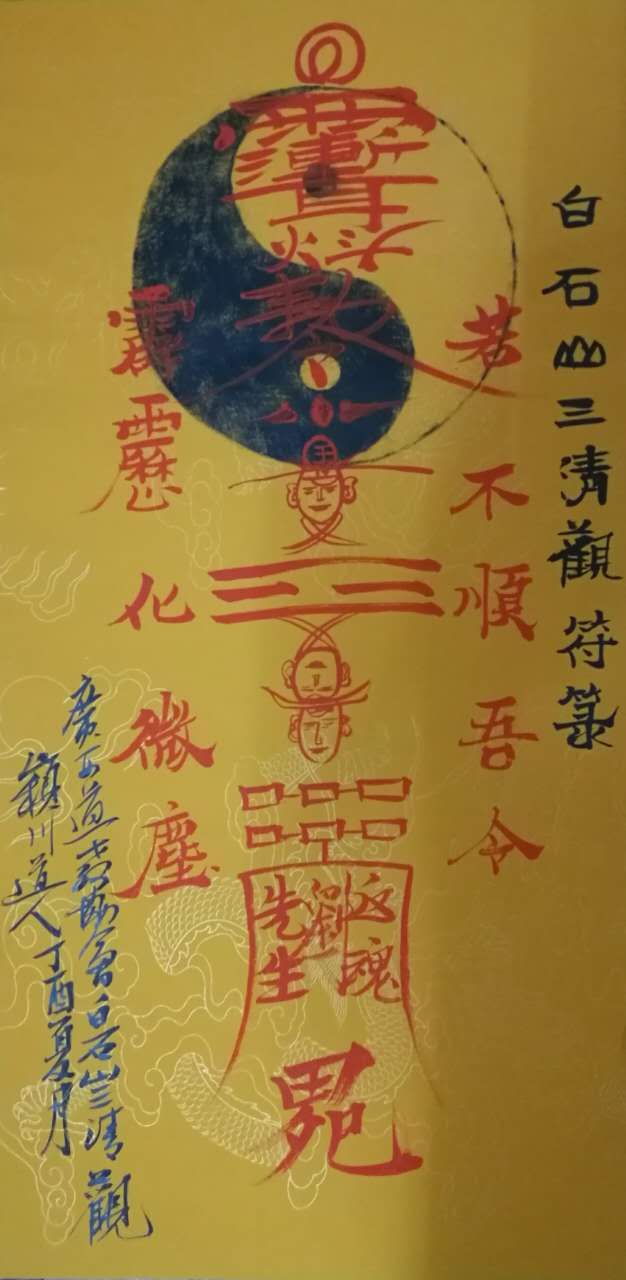 白石山三清觀符箓
若不順吾令
霹靂化微塵
返魂
劉
先生
廣西道教協會白石山三清觀
穎川道人丁酉夏月